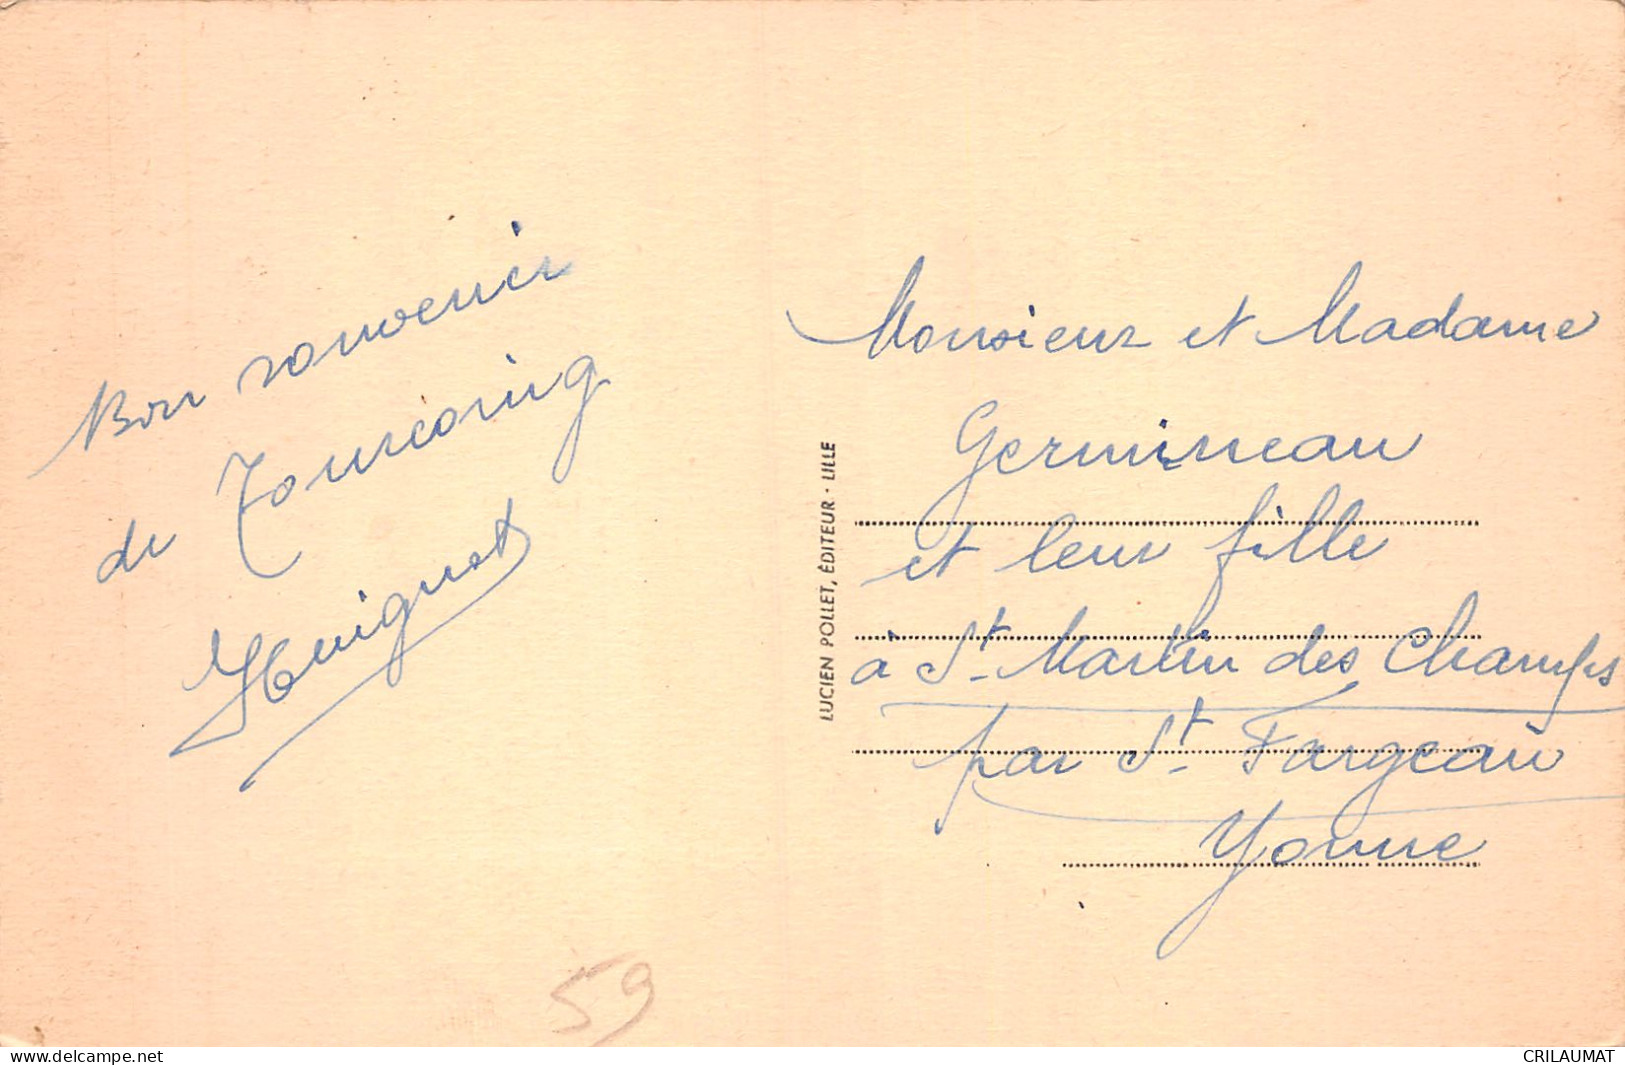 Bon souvenir
de Tourcoing
Huignot
LUCIEN POLLET, ÉDITEUR - LILLE
Monsieur et Madame
Germineau
et leur fille
à St. Martin des Champs
par St. Fargeau
Yonne
59
www.delcampe.net
CRILAUMAT